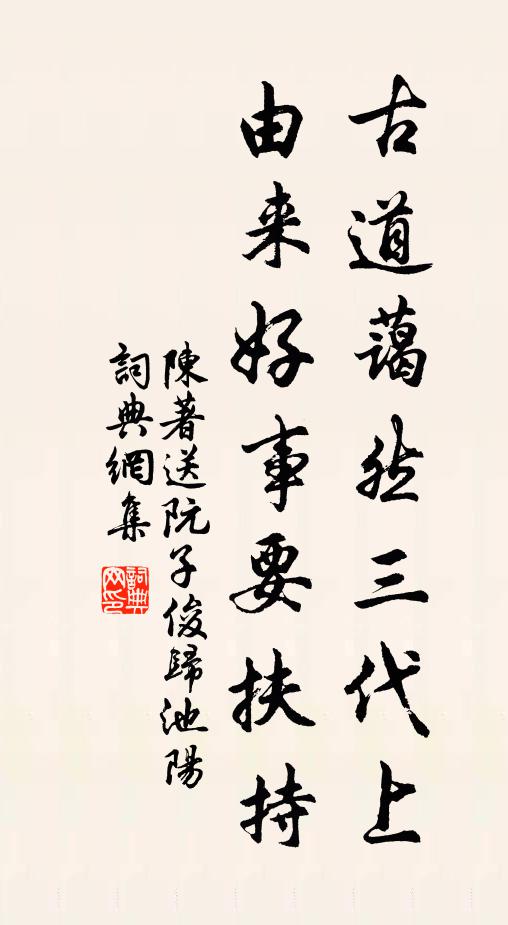 古道藹然三代上
由来好事要扶持
陳著送阮子俊歸池陽
詞典網集
詞典網印